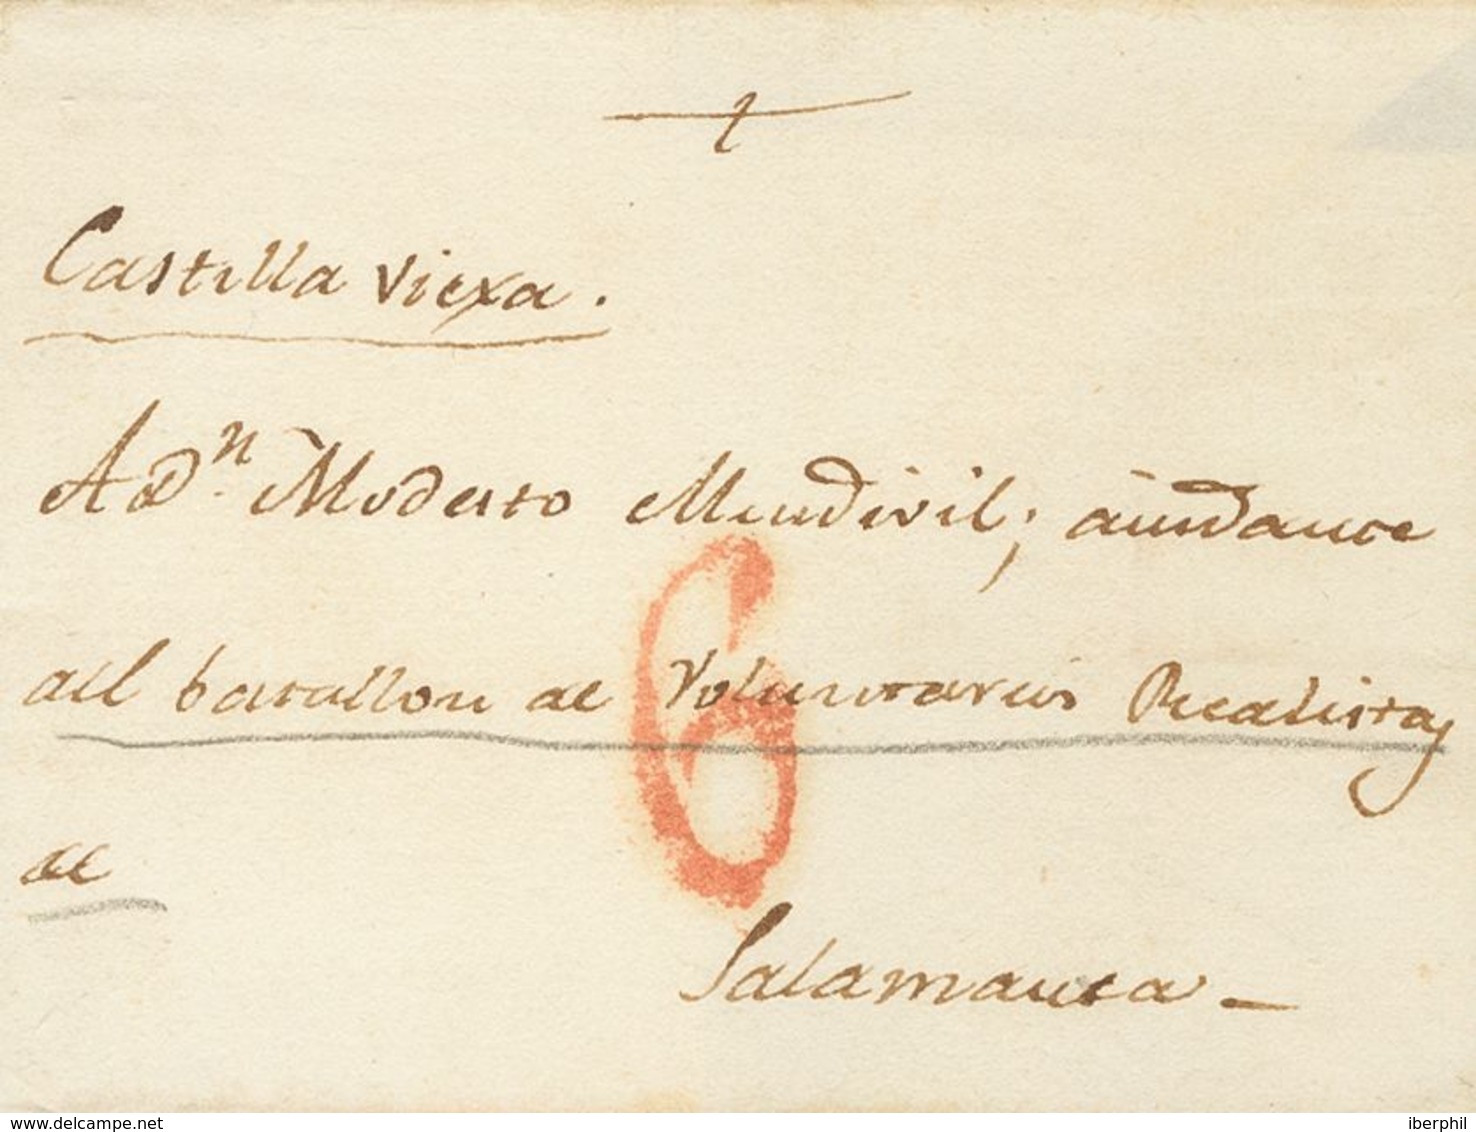 Castilla Viexa.
A Dn. Modesto Mendivil; aiudante
del batallon de Voluntarios Realistas
6
de
Salamanca
delcampe.net
iberphil